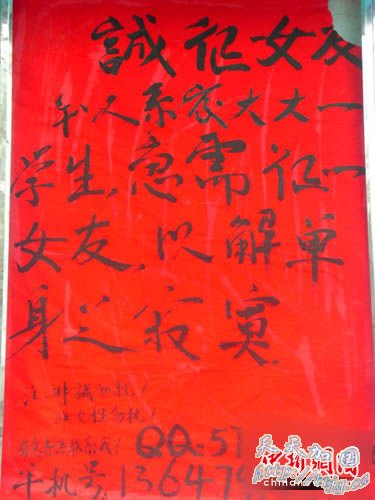 誠征女友
本人系家大大一
学生,急需征一
女友,以解单
身之寂寞.
注:非誠勿扰!
非女性勿扰!
(有意者请联系我) QQ:57
手机号 136479
天天加图
中新网
chinanews